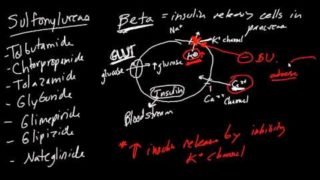 Sulfonylureas
- Tolbutamide
- Chlorpropamide
- Tolazamide
- Glyburide
- Glimepiride
- Glipizide
- Nateglinide
Beta = insulin releasing cells in
pancreas
Na+
K+ channel
GLUT
glucose
↑ glucose
- SU.
Insulin
Ca++
channel
Blood stream
* ↑ insulin release by inhibiting
K+ channel